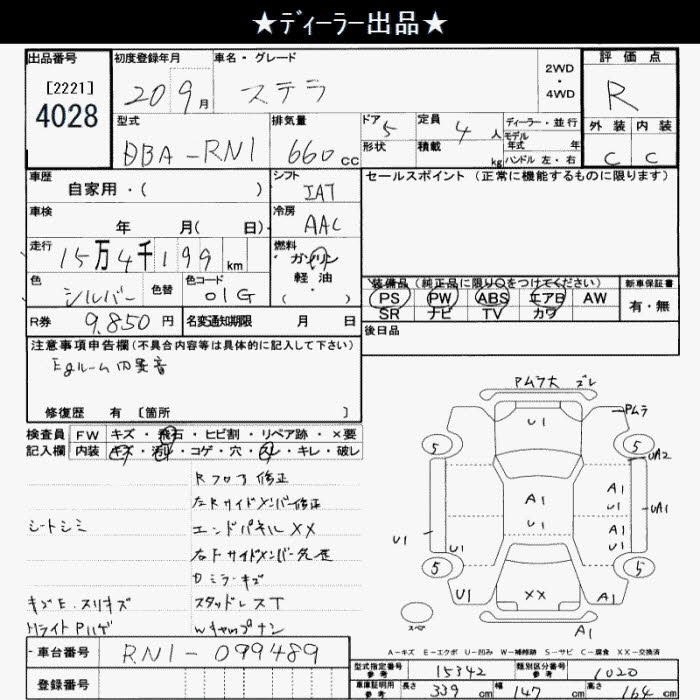 ★ディーラー出品★
出品番号 初度登録年月 車名・グレード 評価点
[2221] 20 9月 ステラ 2WD・4WD R
4028
型式 排気量 ドア 5 定員 4人 ディーラー・並行 外装 内装
DBA-RN1 660cc 形状 積載 kg モデル年式 年 ハンドル 左・右 C C
車歴 シフト セールスポイント (正常に機能するものに限ります)
自家用・( ) IAT
車検 冷房
年 月( 日) AAC
走行 燃料
15万4千199km ガソリン
色 色替 色コード 軽油 装備品 (純正品に限り○をつけてください) 新車保証書
シルバー 01G ( ) PS PW ABS エアB AW 有・無
SR ナビ TV カワ
R券 9,850円 名変通知期限 月 日 後日品
注意事項申告欄(不具合内容等は具体的に記入して下さい)
Egルーム内異音
修復歴 有 [箇所 ]
検査員 FW キズ・飛石・ヒビ割・リペア跡・×要
記入欄 内装 キズ・汚れ・コゲ・穴・スレ・キレ・破レ
Rフロア修正
左Rサイドメンバー修正
シートシミ エンドパネルXX
右Fサイドメンバー
Dミラーキズ
キズE.スリキズ スタッドレスT
HライトPハゲ Wキャップナシ
車台番号 RN1-099489
登録番号
PムラX ズレ
U1 Pムラ
5 5
UA2
A1 A1
U1 U1 UA1
A1
U1 U1 U1
5 5
U1 XX A1
スペア A1
A-キズ E-エクボ U-凹み W-補修跡 S-サビ C-腐食 XX-交換済
型式指定番号 参考 15342 類別区分番号 参考 1020
車庫証明用 参考 長さ 339cm 幅 147cm 高さ 164cm